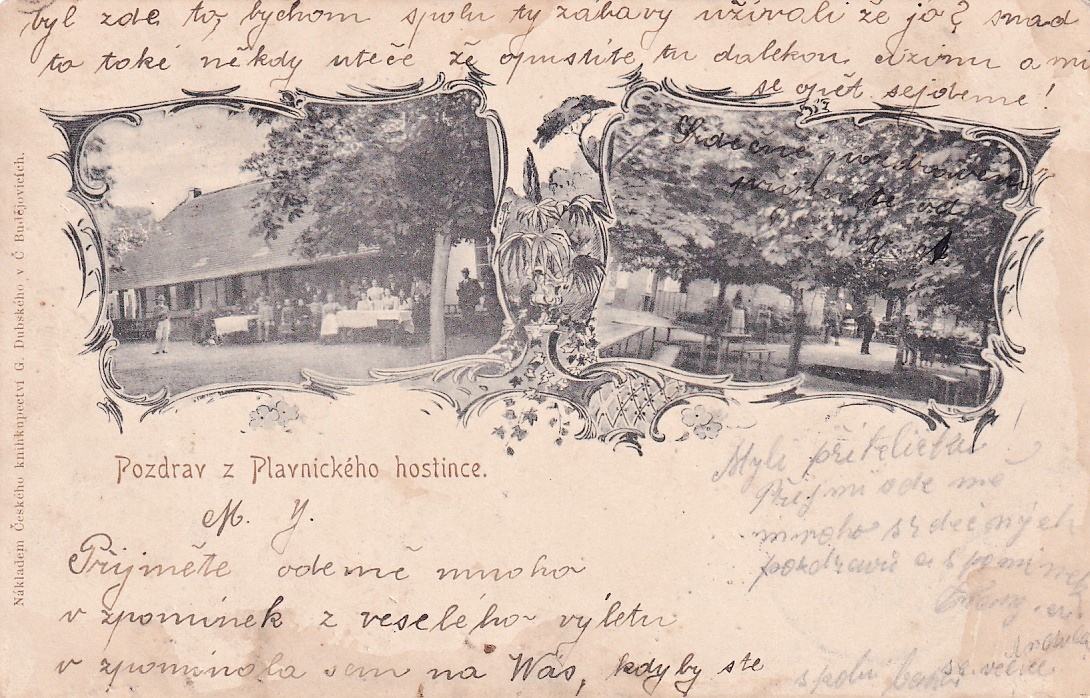 byl zde to, bychom spolu ty zábavy užívali že jo? snad
to také někdy uteče že opustíte tu dalekou cizinu a my
se opět sejdeme!
Srdečné pozdravení
přijměte od
Nákladem Českého knihkupectví G. Dubského v Č Budějovicích.
Pozdrav z Plavnického hostince.
M. Y.
Přijměte odemě mnoho
v zpomínek z veselého výletu
v zpomínala sem na Vás, kdyby ste
Milý příteli
Přijmi ode mě
mnoho srdečných
pozdravů a
spolu